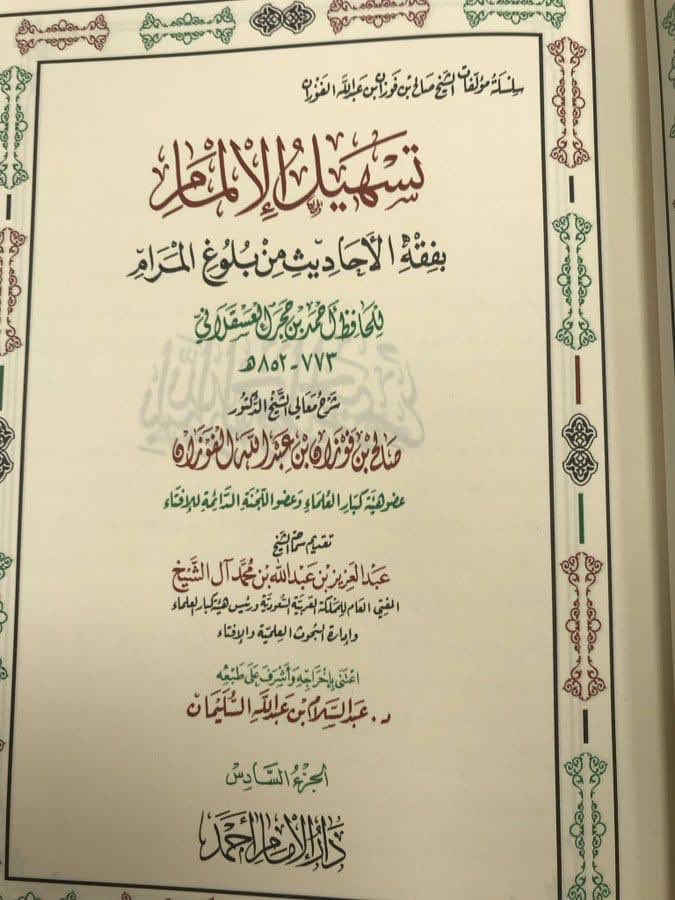 سِلْسِلَةُ مُؤلَّفَاتِ الشَّيْخِ صَالِحِ بْنِ فَوْزَانَ بْنِ عَبْدِ اللَّهِ الفَوْزَان
تَسْهِيلُ الإِلْمَامِ
بِفِقْهِ الأَحَادِيثِ مِنْ بُلُوغِ المَرَامِ
لِلْحَافِظِ أَحْمَدَ بْنِ حَجَرٍ العَسْقَلَانِيِّ
٧٧٣ - ٨٥٢ هـ
شَرْحُ مَعَالِي الشَّيْخِ الدُّكْتُورِ
صَالِحِ بْنِ فَوْزَانَ بْنِ عَبْدِ اللَّهِ الفَوْزَانِ
عضو هيئة كبار العلماء وعضو اللجنة الدائمة للإفتاء
تقديم سماحة الشيخ
عبد العزيز بن عبد الله بن محمد آل الشيخ
المفتي العام للمملكة العربية السعودية ورئيس هيئة كبار العلماء
وإدارة البحوث العلمية والإفتاء
اعْتَنَى بِإِخْرَاجِهِ وَأَشْرَفَ عَلَى طَبْعِهِ
د. عَبْدُ السَّلَامِ بْنُ عَبْدِ اللَّهِ السُّلَيْمَان
الجُزْءُ السَّادِسُ
دَارُ الإِمَامِ أَحْمَدَ